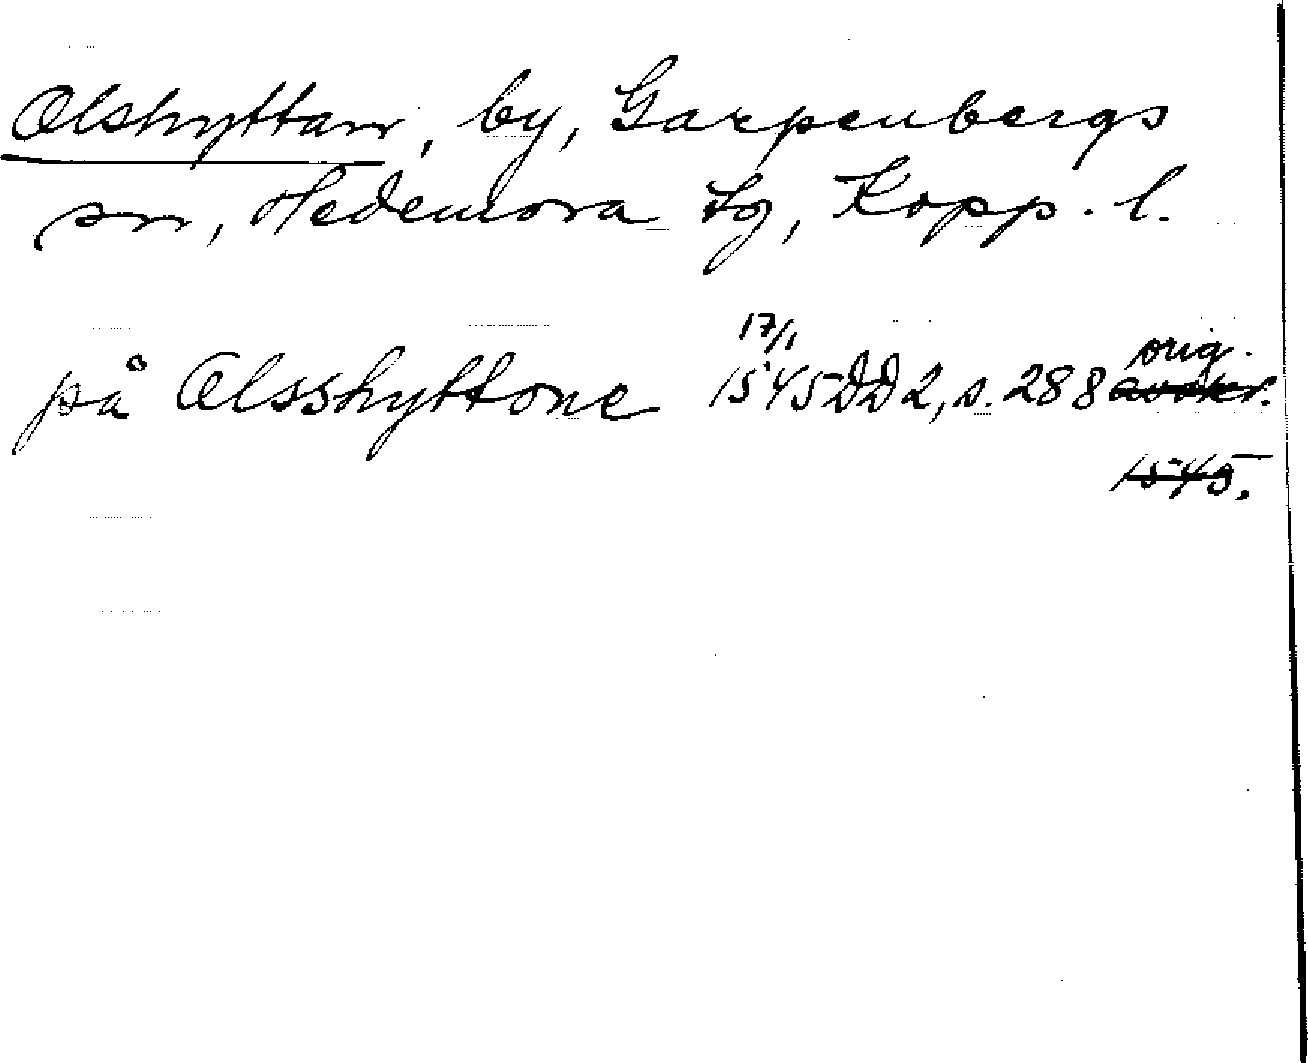 Olshyttan, by, Garpenbergs
sn, Hedemora tg, Kopp. l.
17/1
på Olsshyttone 1545 DD 2, s. 288 orig.
1545.